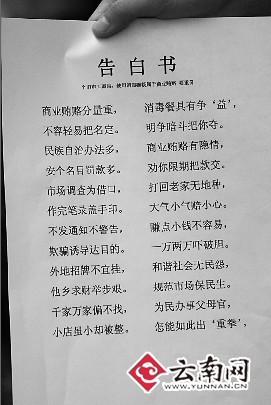 告白书
商业贿赂分量重，
不容轻易把名定。
民族自治办法多，
安个名目罚款多。
市场调查为借口，
作完笔录盖手印。
不发通知不警告，
欺骗诱导达目的。
外地招牌不宜挂，
他乡求财举步艰。
千家万家偏不找，
小店虽小却被整。
消毒餐具有争“益”，
明争暗斗把你夺。
商业贿赂有隐情，
劝你限期把款交。
打回老家无地种，
大气小气赔小心。
赚点小钱不容易，
一万两万吓破胆。
和谐社会无民怨，
规范市场保民生。
为民办事父母官，
怎能如此出“重拳”，
云南网
WWW.YUNNAN.CN